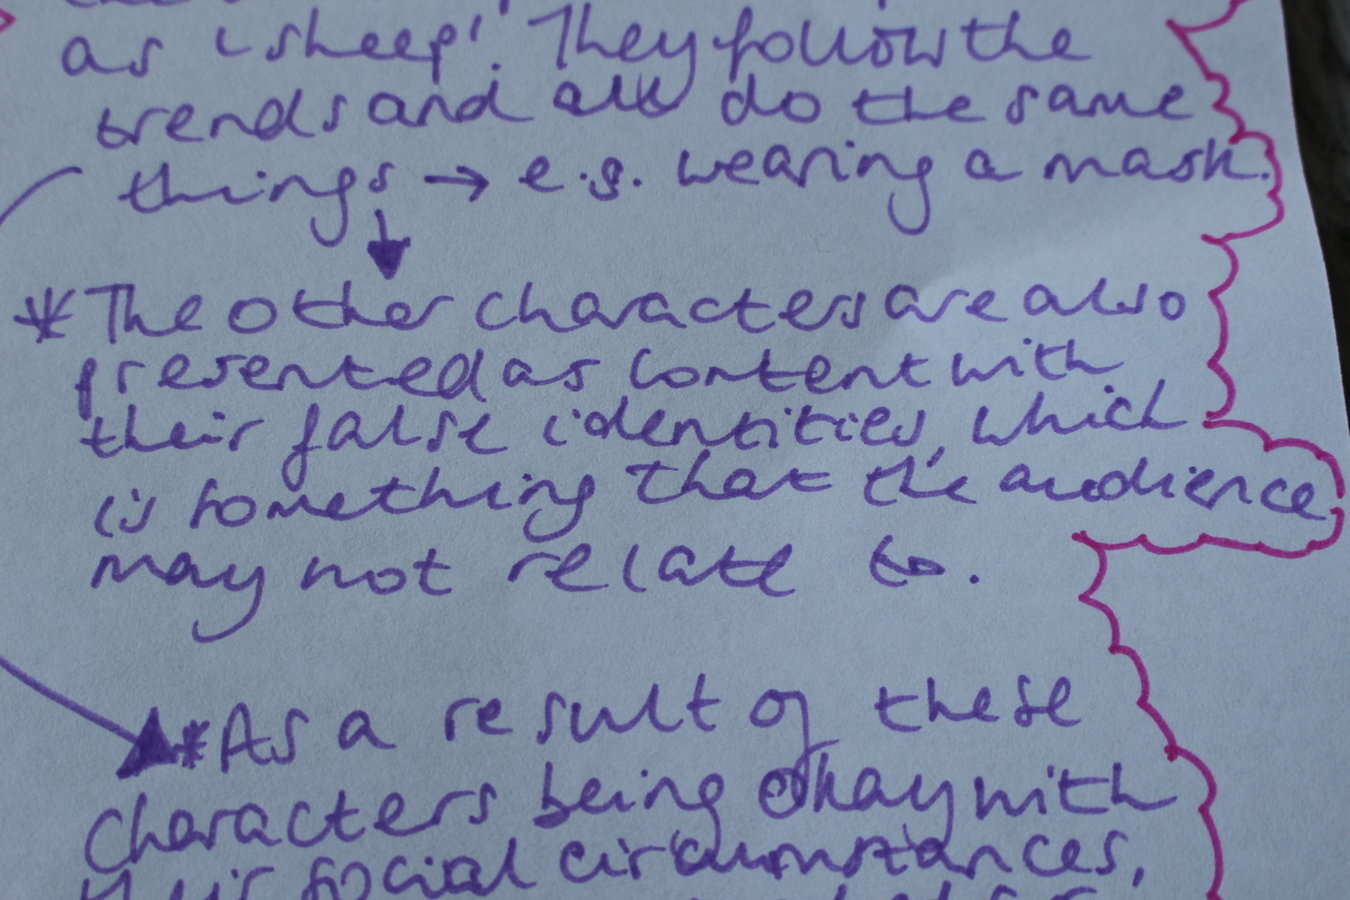 as 'sheep'. They follow the
trends and all do the same
things → e.g. wearing a mask.
* The other characters are also
presented as content with
their false identities, which
is something that the audience
may not relate to.
* As a result of these
characters being okay with
their social circumstances,